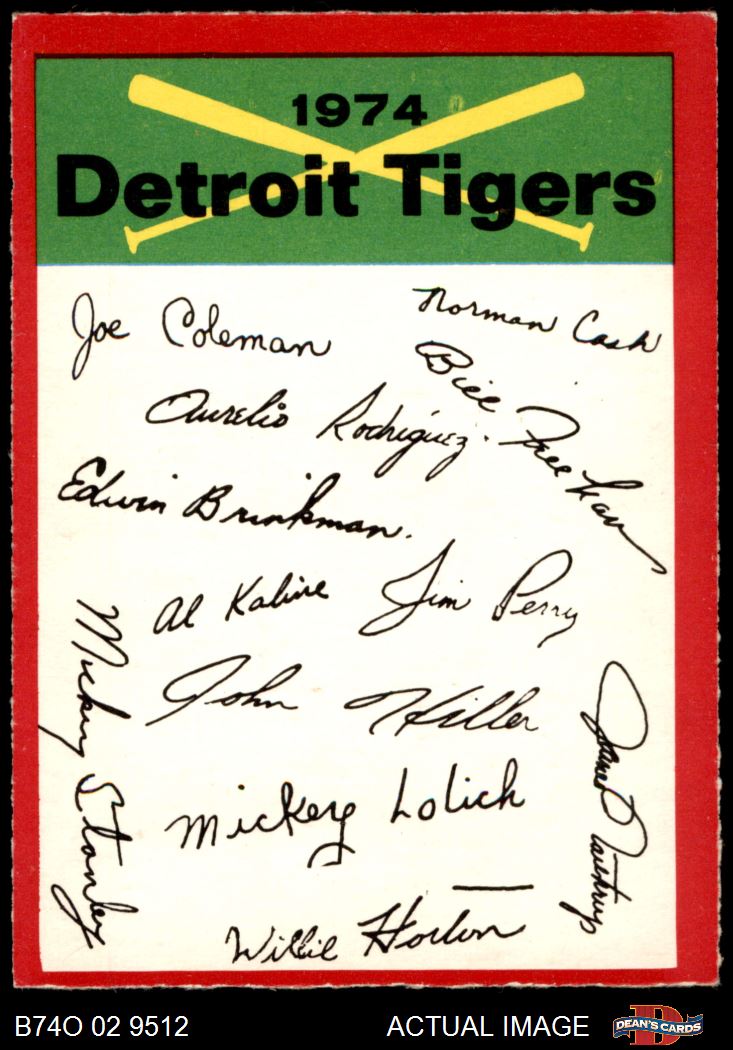 1974
Detroit Tigers
Joe Coleman
Norman Cash
Aurelio Rodriguez.
Bill Freehan
Edwin Brinkman.
Al Kaline
Jim Perry
Mickey Stanley
John Hiller
Mickey Lolich
Willie Horton
B74O 02 9512
ACTUAL IMAGE
DEAN'S CARDS